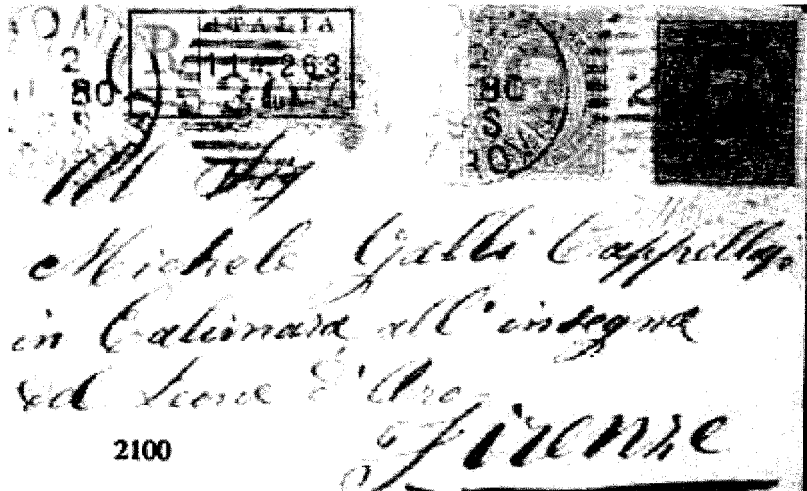 ITALIA
R
114263
2
80
S
80
S
10
Michele Galli Cappellajo
in Calimara all'insegna
del Leone d'Oro
Firenze
2100